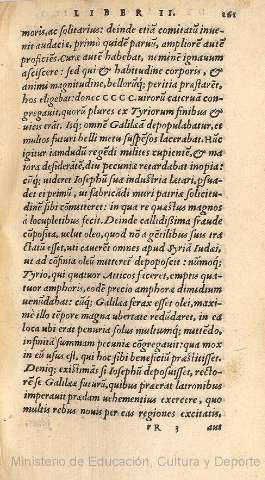 LIBER II. 261
moris, ac solitarius: deinde etiã comitatũ inue-
nit audaciæ, primò quidẽ paruũ, ampliorẽ autẽ
proficiẽs. Curæ autẽ habebat, neminẽ ignauum
asciscere: sed qui & habitudine corporis, &
animi magnitudine, bellorũq; peritia præstarẽt,
hos eligebat: donec CCCC. uirorũ cateruã con-
gregauit, quorũ plures ex Tyriorum finibus &
uicis erãt. Isq; omnẽ Galilæã depopulabatur, et
multos futuri belli metu suspẽsos lacerabat. Hũc
igitur iamdudũ regẽdi milites cupientẽ, & ma
iora desiderãtẽ, diu pecuniæ retardabat inopia:
cũq; uideret Iosephũ sua industria lætari, psua-
det ei primũ, ut fabricãdi muri patriæ solicitu-
dinẽ sibi cõmitteret: in qua re quæstus magnos
à locupletibus fecit. Deinde callidissima fraude
cõposita, uelut oleo, quod nõ à gẽtilibus suis tra
ctatũ esset, uti cauerẽt omnes apud Syriã Iudæi,
ut ad cõfinia oleũ mitteret depoposcit: nũmoq;
Tyrio, qui quatuor Atticos faceret, emptis qua-
tuor amphoris, eodẽ precio amphoræ dimidium
uenũdabat: cũq; Galilæa ferax esset olei, maxi-
mè illo tẽpore magna ubertate redũdaret, in ea
loca ubi erat penuria solus multumq; mittẽdo,
infinitã summam pecuniæ cõgregauit: qua mox
in eũ usus est, qui hoc sibi beneficiũ præstitisset.
Deniq; existimãs si Iosephũ deposuisset, recto-
rẽ se Galilææ futurũ, quibus præerat latronibus
imperauit prædam uehementius exercere, quo
multis rebus nouis per eas regiones excitatis,
RR 3 aut
Ministerio de Educación, Cultura y Deporte